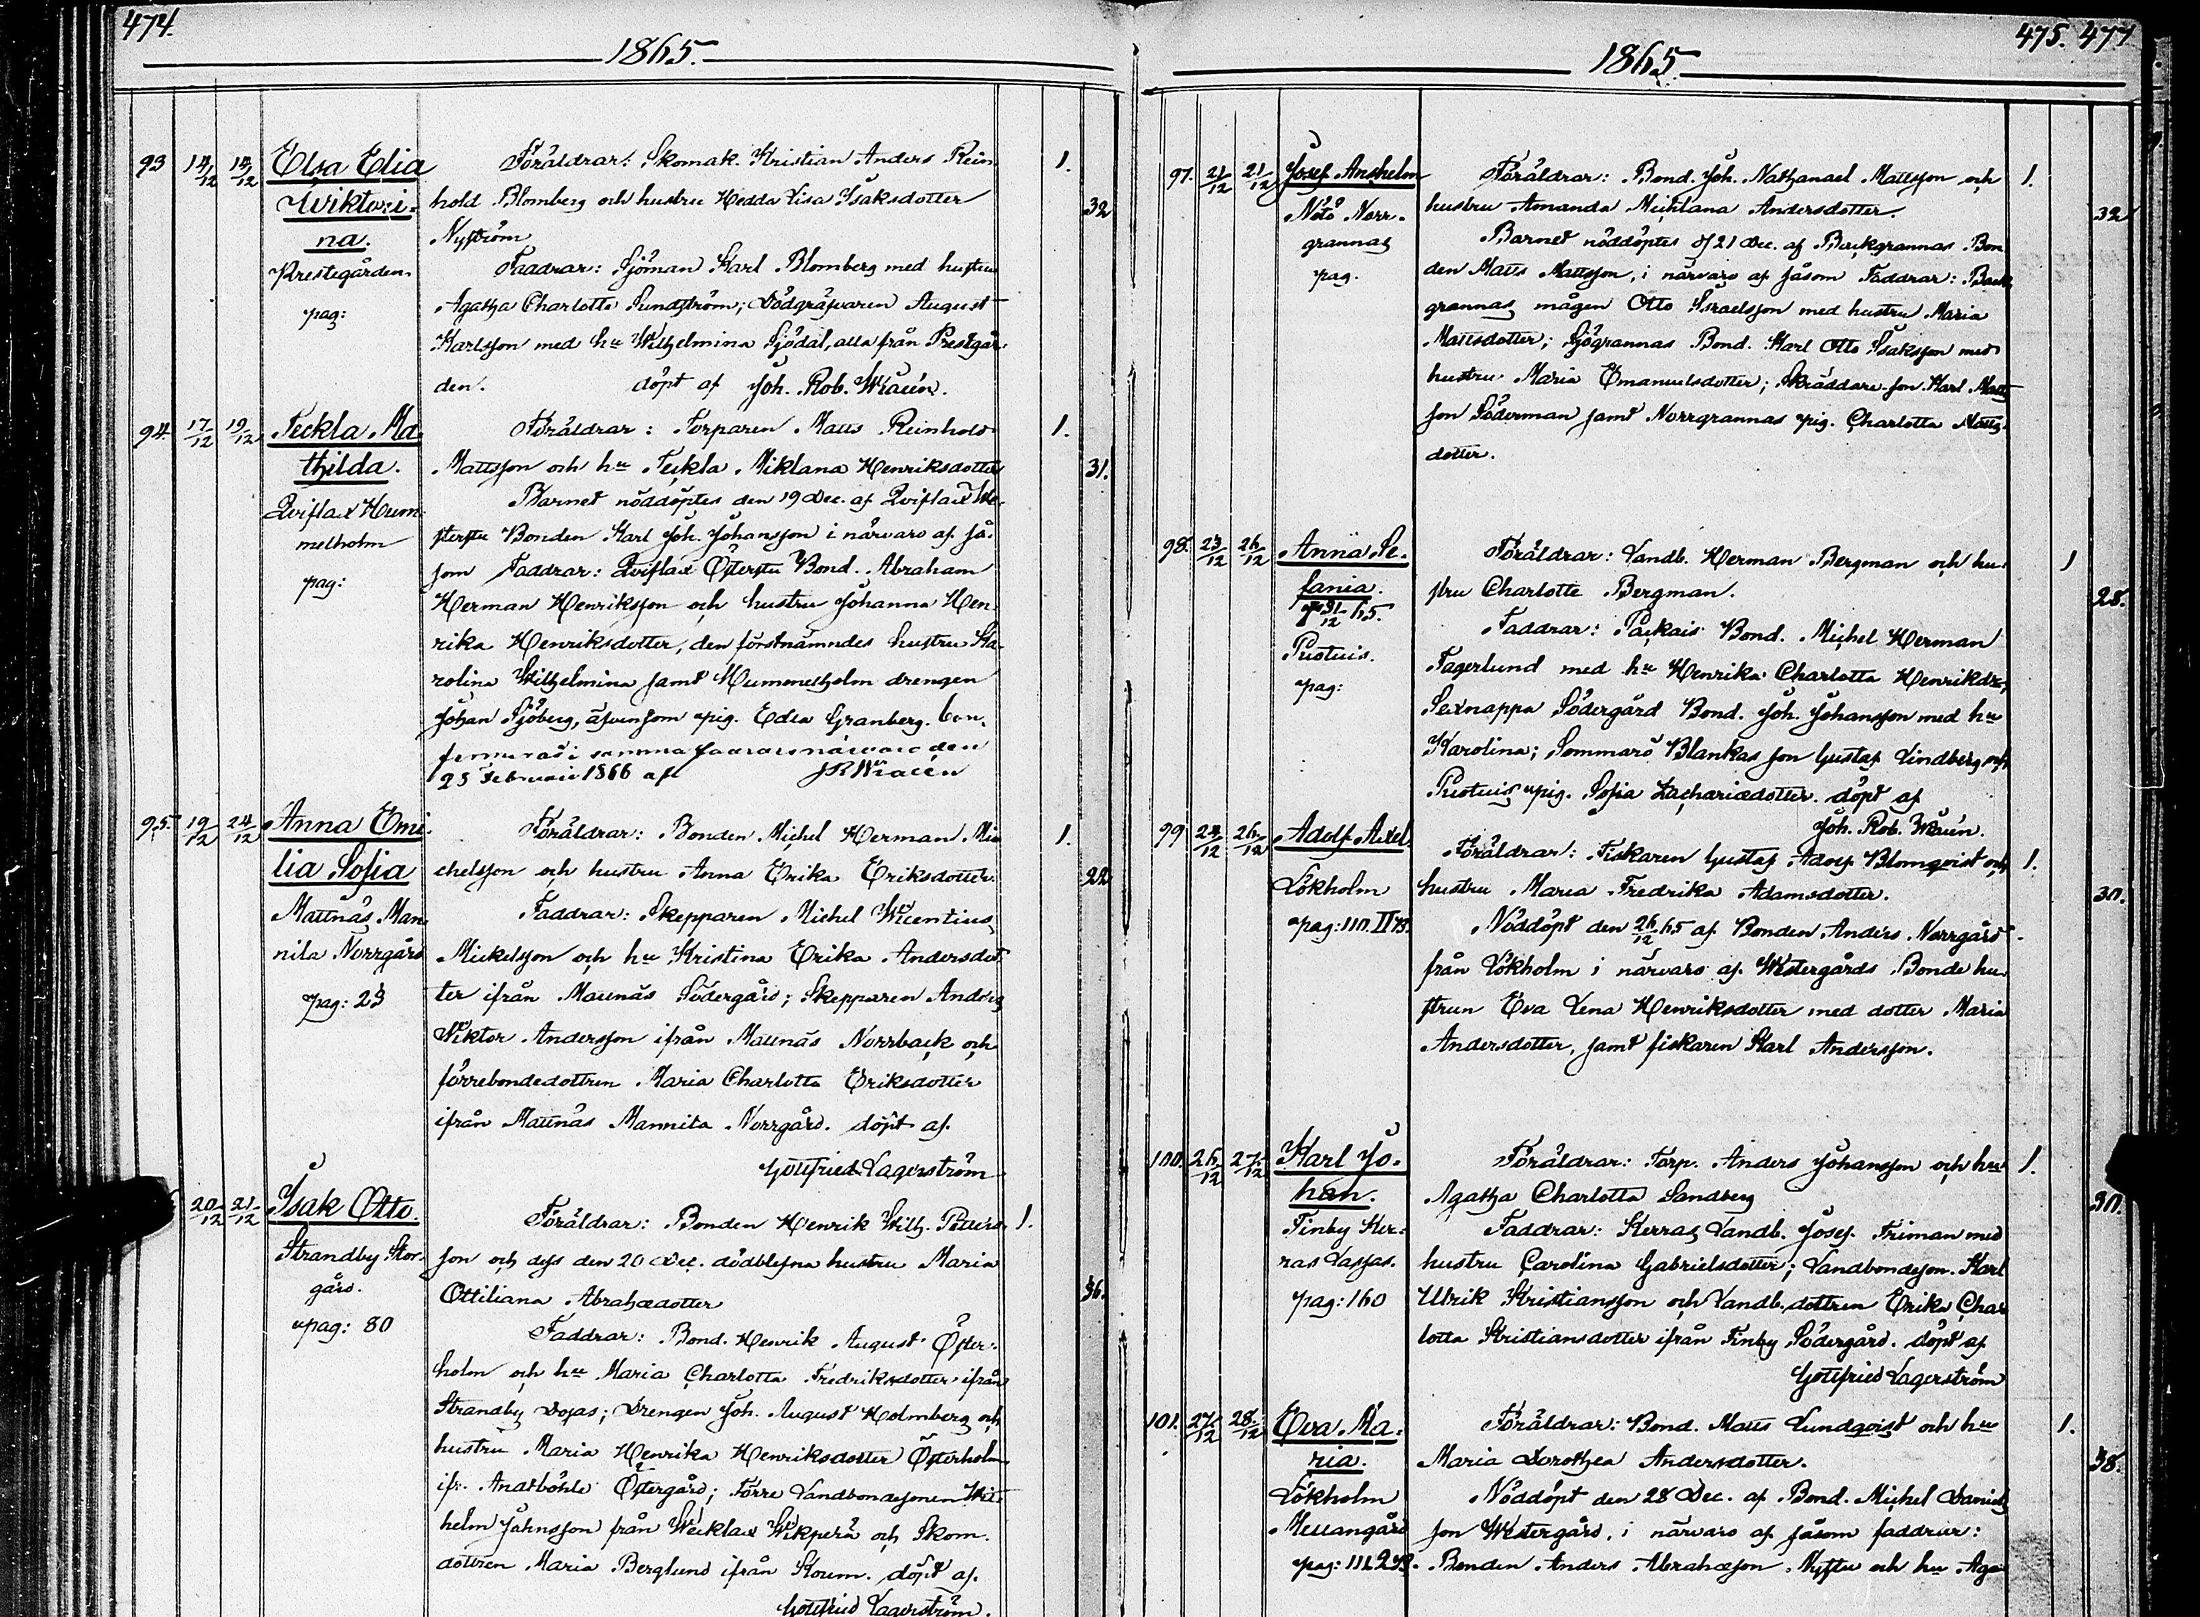 474.
1865.
93 14/12 14/12 Elsa Elia Föräldrar: Skomak. Kristian Anders Rein 1.
Wiktori- hold Blomberg och hustru Hedda Lisa Isaksdotter 32
na. Nyström
Prestegården Faddrar: Sjöman Karl Blomberg med hustru
pag: Agatha Charlotta Sundström; Dödgräfvaren August
Karlsson med hu Wilhelmina Sjödal, alla från Prestgår-
den. döpt af Joh. Rob. Wraén.
94. 17/12 19/12 Teckla Ma- Föräldrar: Torparen Matts Reinhold 1.
thilda. Mattsson och hu Teckla Miklana Henriksdotter 31.
Qviflax Hum- Barnet nöddöptes den 19 Dec. af Qviflax We-
melholm sterstu Bonden Karl Joh. Johansson i närvaro af så-
pag: som Faddrar: Qviflax Österstu Bond. Abraham
Herman Henriksson och hustru Johanna Hen-
rika Henriksdotter, den förstnämndes hustru Ka-
rolina Wilhelmina samt Hummelholm drengen
Johan Sjöberg, äfvensom pig. Edla Granberg. Con-
firmeras i samma faddrars närvaro den
25 Februari 1866 af JRWraén
95. 19/12 24/12 Anna Emi- Föräldrar: Bonden Michel Herman Mi- 1.
lia Sofia chelsson och hustru Anna Erika Eriksdotter. 22
Mattnäs Man- Faddrar: Skepparen Michel Wicentius
nila Norrgård Mickelsson och hu Kristina Erika Andersdot-
pag: 23 ter ifrån Mattnäs Södergård; Skepparen Anders
Wiktor Andersson ifrån Mattnäs Norrback och
förrebondedottren Maria Charlotta Eriksdotter
ifrån Mattnäs Mannila Norrgård. döpt af
Gottfried Lagerström
20/12 21/12 Isak Otto. Föräldrar: Bonden Henrik Wilh. Petters- 1.
Strandby Stor- son och dess den 20 Dec. dödblefna hustru Maria
gård. Ottiliana Abrahædotter 36.
pag: 80 Faddrar: Bond. Henrik August Öster-
holm och hu Maria Charlotta Fredriksdotter ifrån
Strandby Dojas; Drengen Joh. August Holmberg och
hustru Maria Henrika Henriksdotter Österholm
ifr. Andböhle Östergård; Förre Landbondesonen Wil-
helm Jahnsson från Wecklax Wikperä och Skom.
dottren Maria Berglund ifrån Koum. döpt af
Gottfried Lagerström.
475. 477
1865
97. 21/12 21/12 Josef Anshelm Föräldrar: Bond. Joh. Nathanael Mattsson och 1.
Nötö Norr- hustru Amanda Michlana Andersdotter. 32
grannas Barnet nöddöptes d/ 21 Dec. af Backgrannas Bon-
pag. den Matts Mattsson, i närvaro af såsom Faddrar: Back-
grannas mågen Otto Israelsson med hustru Maria
Mattsdotter; Sjögrannas Bond. Karl Otto Isaksson med
hustru Maria Emanuelsdotter; Skräddare-son. Karl Matts
son Söderman samt Norrgrannas pig. Charlotta Matts-
dotter.
98. 23/12 26/12 Anna Se- Föräldrar: Landb. Herman Bergman och hu- 1
fania. stru Charlotte Bergman. 28.
† 31/12 65. Faddrar: Parkais Bond. Michel Herman
Puotuis. Fagerlund med hu Henrika Charlotta Henriksdr,
pag: Sexnappa Södergård Bond. Joh. Johansson med hu
Karolina; Sommarö Blankas son Gustaf Lindberg och
Puotuis pig. Sofia Zachariædotter. döpt af
Joh. Rob. Wraén.
99 24/12 26/12 Adolf Axel. Föräldrar: Fiskaren Gustaf Adolf Blomqvist och 1.
Lökholm hustru Maria Fredrika Adamsdotter. 30.
pag: 110. II Nöddöpt den 26/12 65 af Bonden Anders Norrgård
från Lökholm i närvaro af Westergårds Bonde hu-
strun Eva Lena Henriksdotter med dotter Maria
Andersdotter, samt fiskaren Karl Andersson.
100. 26/12 27/12 Karl Jo- Föräldrar: Torp. Anders Johansson och hu 1.
han. Agatha Charlotta Sandberg 30.
Finby Ker- Faddrar: Kerras Landb. Josef Friman med
ras Lassas. hustru Carolina Gabrielsdotter; Landbondeson. Karl
pag: 160 Ulrik Kristiansson och Landb.dottren Erika Char-
lotta Kristiansdotter ifrån Finby Södergård. döpt af
Gottfried Lagerström
101. 27/12 28/12 Eva Ma- Föräldrar: Bond. Matts Lundqvist och hu 1.
ria. Maria Dorothea Andersdotter. 38.
Lökholm Nöddöpt den 28 Dec. af Bond. Michel Daniels
Mellangård son Westergård, i närvaro af såsom faddrar:
pag: 111. Bonden Anders Abrahæson Nystu och hu Aga-